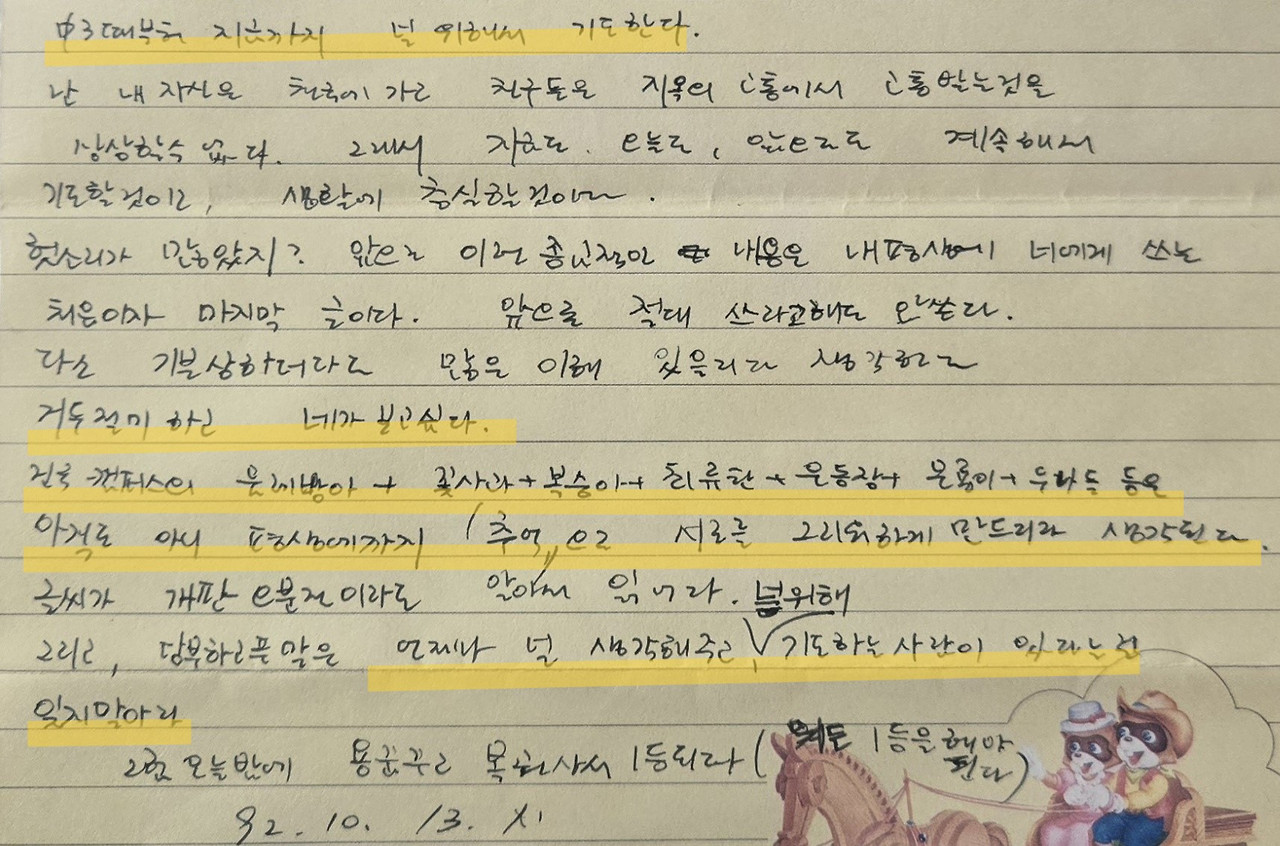 中3때부터 지금까지 널 위해서 기도한다.
난 내 자신은 천국에 가고 친구들은 지옥의 고통에서 고통받는것을
상상할수 없다. 그래서 지금도. 오늘도, 앞으로도 계속해서
기도할것이고, 생활에 충실할것이다.
헛소리가 많았지? 앞으로 이런 종교적인 내용은 내평생에 너에게 쓰는
처음이자 마지막 글이다. 앞으로 절대 쓰라고해도 안쓴다.
다소 기분상하더라도 많은 이해 있을리라 생각하고
거두절미 하고 네가 보고싶다.
건국 캠퍼스의 물레방아 + 꽃사과 + 복숭아 + 최류탄 + 운동장 + 등은
아직도 아니 평생에까지 "추억"으로 서로를 그리워하게 만드리라 생각된다.
글씨가 개판 5분전이라도 알아서 읽어라.
그리고, 당부하고픈말은 언제나 널 생각해주고 널위해 기도하는사람이 있다는걸
잊지말아라
그럼 오늘밤에 용꿈꾸고 복권사서 1등되라 (뭐든 1등을해야
된다)
92. 10. 13.